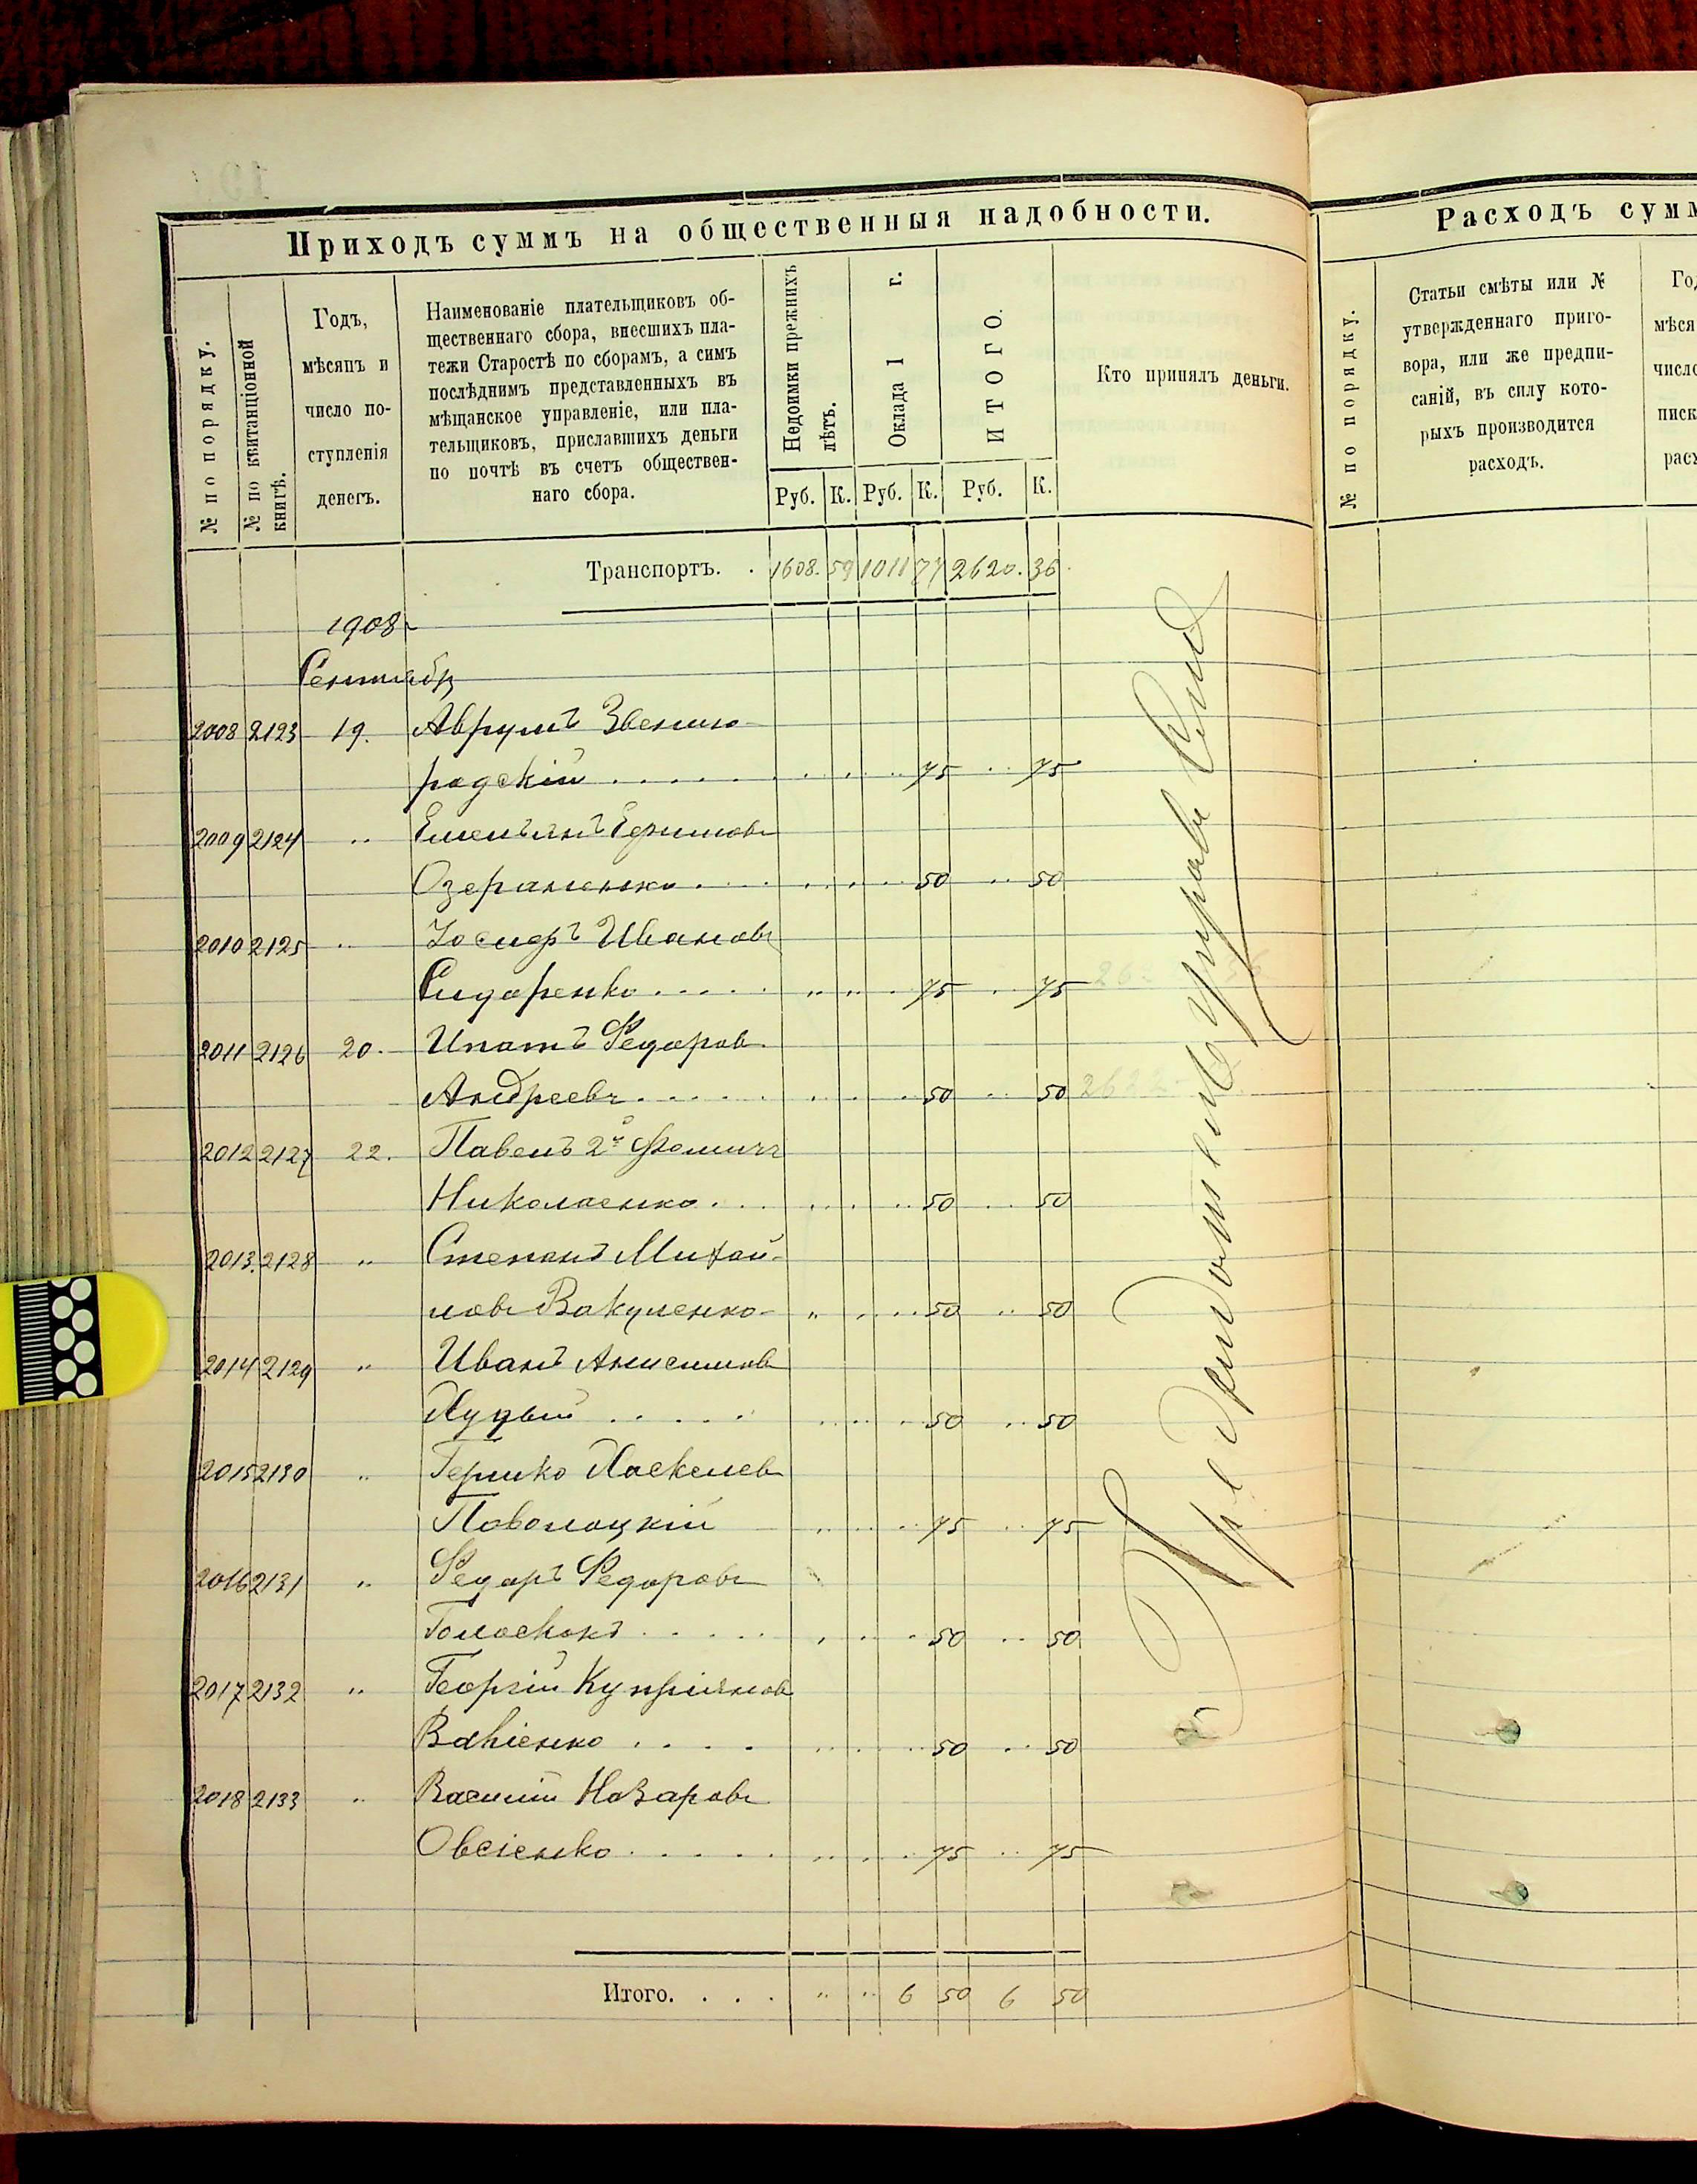 Приходъ суммъ на общественныя надобности.
№ по порядку.
№ по квитанціонной
книгѣ.
Годъ,
мѣсяцъ и
число по-
ступленія
денегъ.
Наименованіе плательщиковъ об-
щественнаго сбора, внесшихъ пла-
тежи Старостѣ по сборамъ, а симъ
послѣднимъ представленныхъ въ
мѣщанское управленіе, или пла-
тельщиковъ, приславшихъ деньги
по почтѣ въ счетъ обществен-
наго сбора.
Недоимки прежнихъ
лѣтъ.
Оклада 1 г.
ИТОГО.
Кто принялъ деньги.
Руб. К. Руб. К. Руб. К.
Транспортъ. . 1608. 59 1011 77 2620. 36
1908
Сентябр
2008 2123 19. Аврумъ Звениго-
родскій 75 75
2009 2124 " Емельянъ Ефимовъ
Озераненко 50 50
2010 2125 " Іосифъ Ивановъ
Сидоренко 75 75
2011 2126 20. Ипатъ Федоров
Андреевъ 50 50
2012 2127 22. Павелъ 2й Фомичъ
Николаенко 50 50
2013. 2128 " Степанъ Михай-
ловъ Вакуленко 50 50
2014 2129 " Иванъ Анисимовъ
Худый 50 50
2015 2130 " Гершко Хаскелевъ
Поволоцкій 75 75
2016 2131 " Федоръ Федоровъ
Голосконъ 50 50
2017 2132 " Георгій Купріяновъ
50 50
2018 2133 " Василій Назаровъ
Овсіенко 75 75
Итого. . . . " " 6 50 6 50
Расходъ сумм
№ по порядку.
Статьи смѣты или №
утвержденнаго приго-
вора, или же предпи-
саній, въ силу кото-
рыхъ производится
расходъ.
Го
мѣся
число
писк
рас